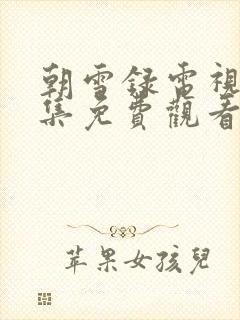 朝雪録電視
集免費觀看
苹果女孩兒